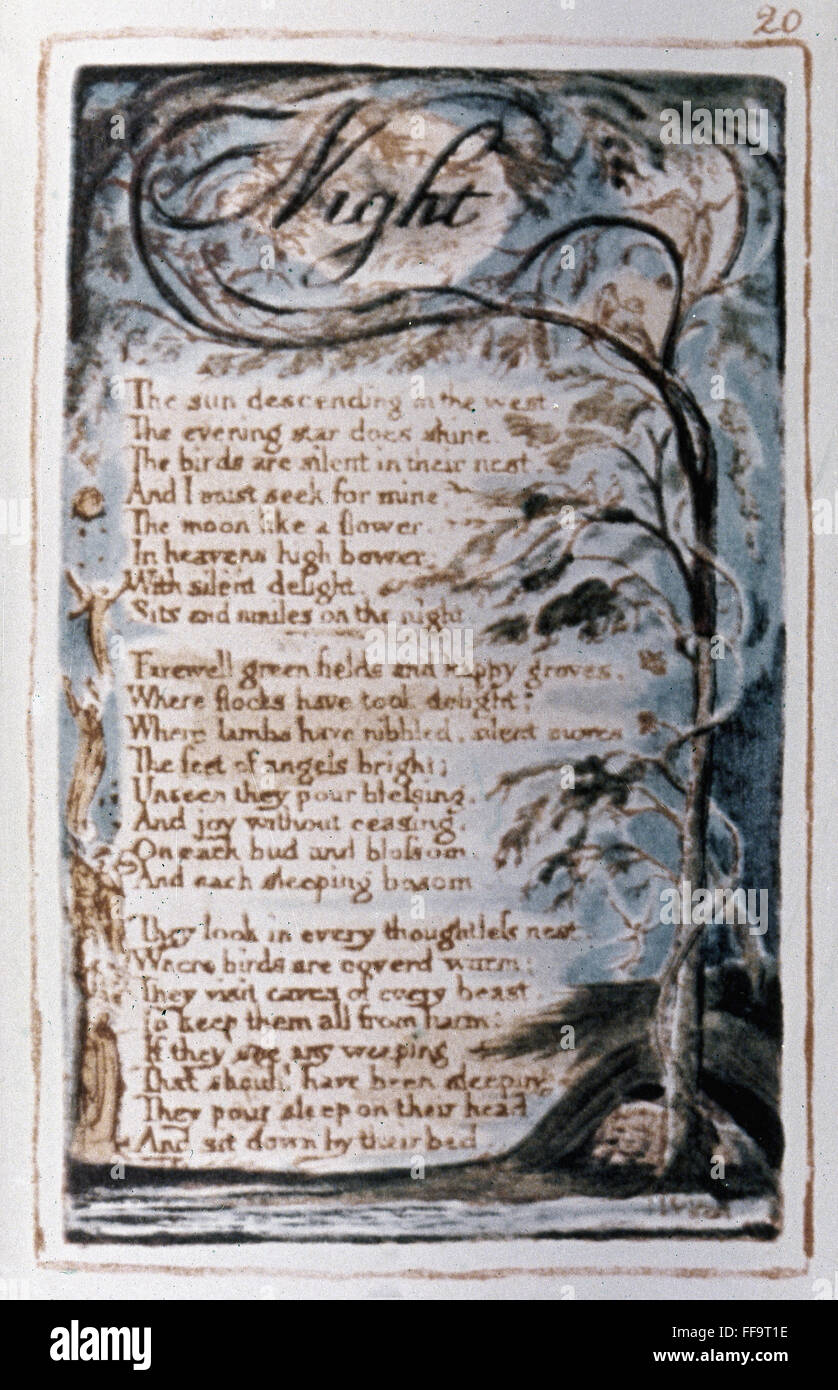 20
Night
The sun descending in the west
The evening star does shine.
The birds are silent in their nest.
And I must seek for mine
The moon like a flower.
In heavens high bower,
With silent delight.
Sits and smiles on the night
Farewell green fields and happy groves,
Where flocks have took delight;
Where lambs have nibbled, silent moves
The feet of angels bright;
Unseen they pour blessing,
And joy without ceasing,
On each bud and blossom
And each sleeping bosom
They look in every thoughtless nest
Where birds are coverd warm;
They visit caves of every beast
To keep them all from harm:
If they see any weeping
That should have been sleeping
They pour sleep on their head
And sit down by their bed
alamy
alamy
Image ID: FF9T1E
www.alamy.com